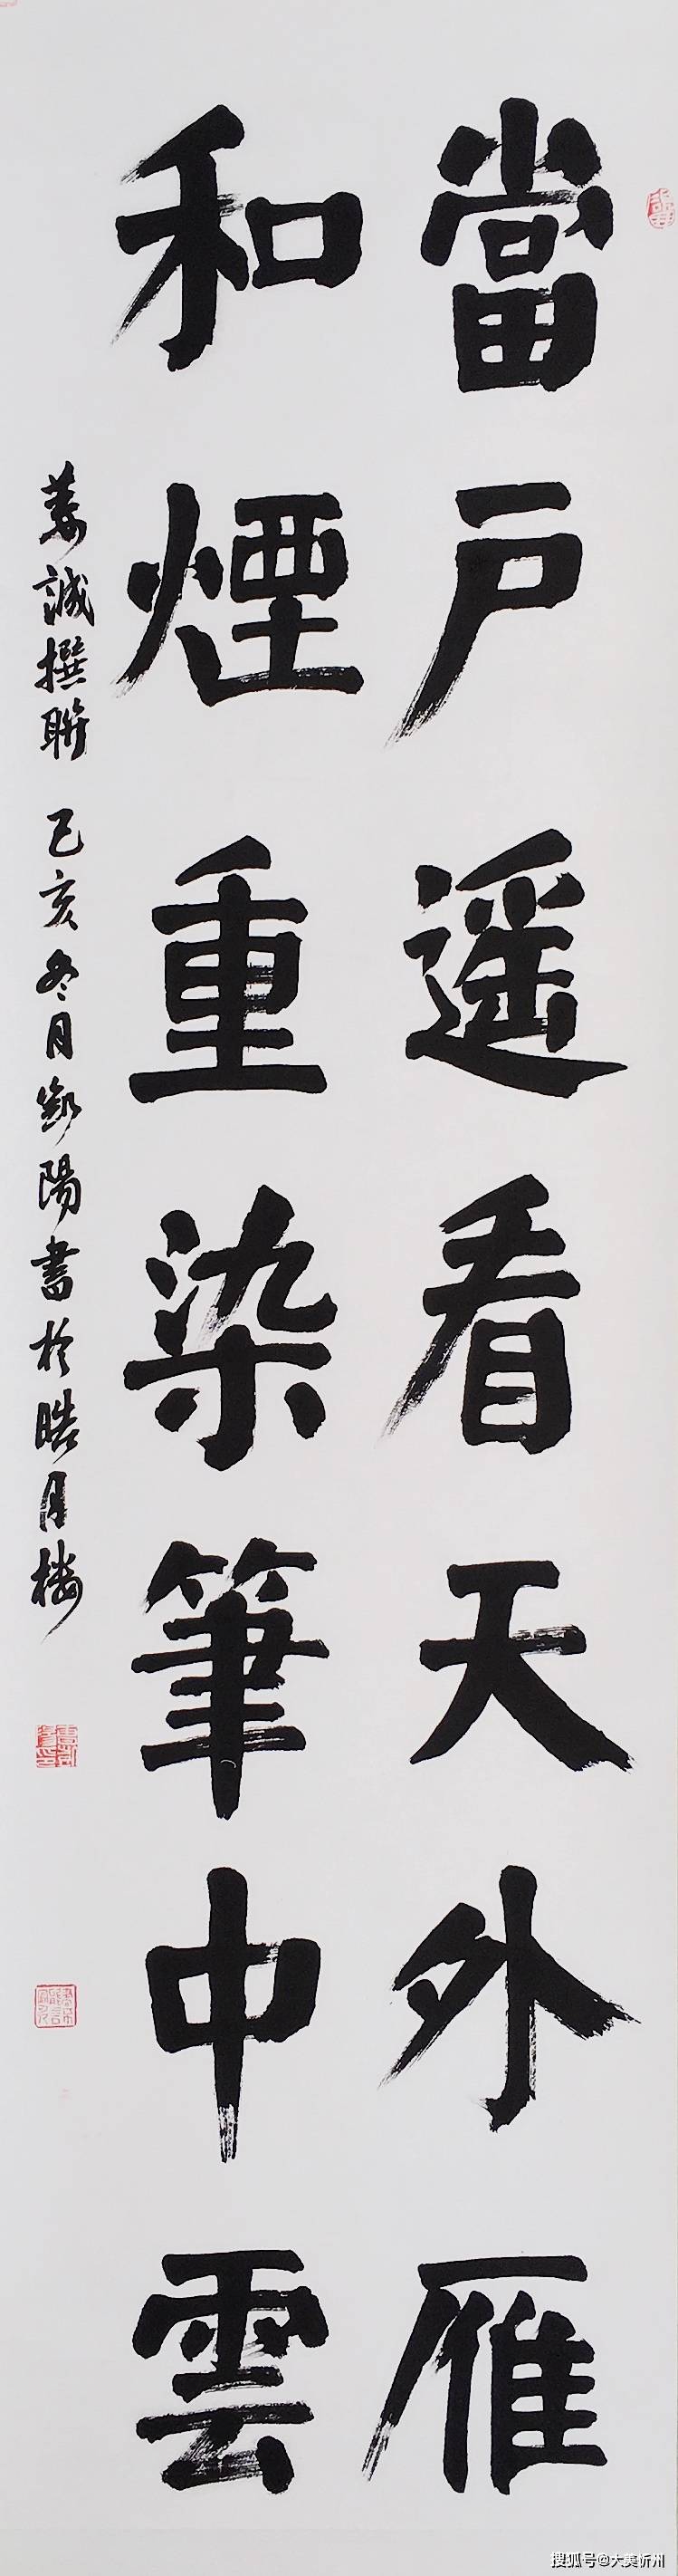 當戶遥看天外雁
和煙重染筆中雲
姜誠撰聯 己亥冬月 陽書於皓月樓
搜狐号@大美忻州